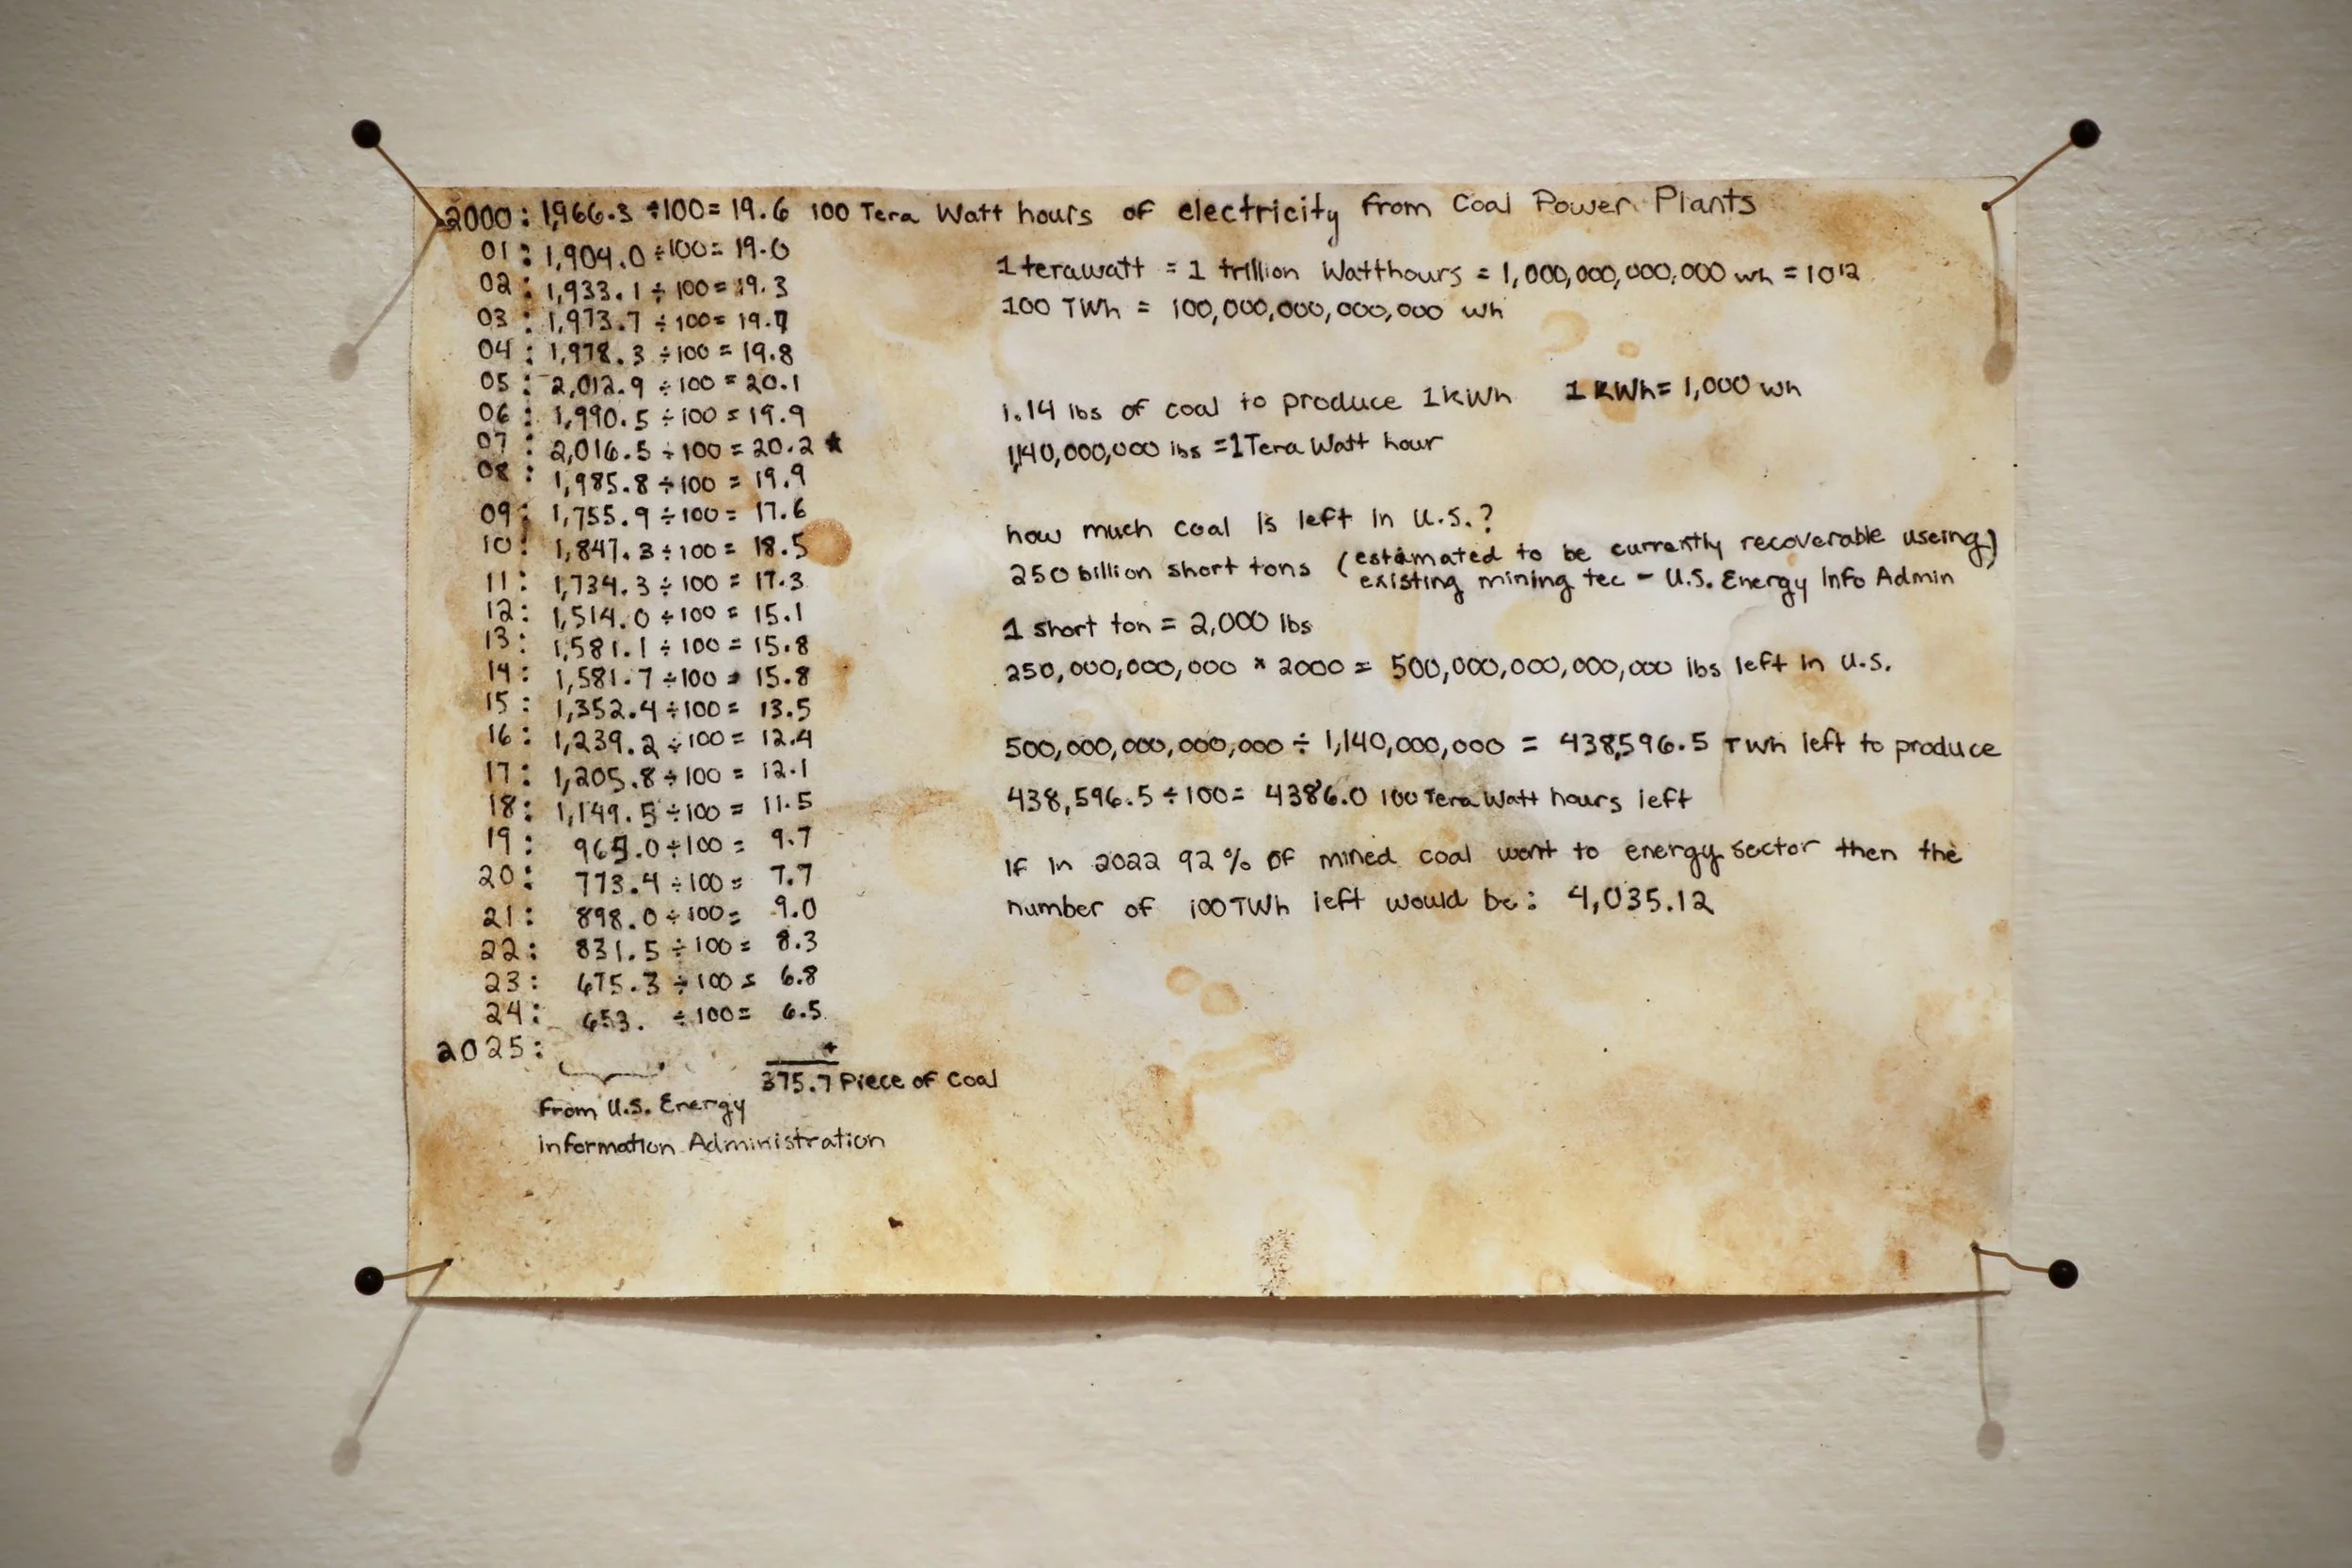 2000: 1,966.3 ÷100= 19.6 100 Tera Watt hours of electricity from Coal Power Plants
01: 1,904.0 ÷100= 19.0
02: 1,933.1 ÷ 100 = 19.3
03: 1,973.7 ÷100= 19.7
04: 1,978.3 ÷100 = 19.8
05: 2,012.9 ÷100 = 20.1
06: 1,990.5 ÷100 = 19.9
07: 2,016.5 ÷100 = 20.2 ★
08: 1,985.8 ÷100 = 19.9
09: 1,755.9 ÷100= 17.6
10: 1,847.3 ÷100= 18.5
11: 1,734.3 ÷ 100 = 17.3
12: 1,514.0 ÷100 = 15.1
13: 1,581.1 ÷ 100 = 15.8
14: 1,581.7 ÷100 = 15.8
15: 1,352.4 ÷100= 13.5
16: 1,239.2 ÷100= 12.4
17: 1,205.8 ÷100 = 12.1
18: 1,149.5 ÷100 = 11.5
19: 965.0 ÷100 = 9.7
20: 773.4 ÷100= 7.7
21: 898.0 ÷100= 9.0
22: 831.5 ÷ 100= 8.3
23: 675.3 ÷ 100= 6.8
24: 653. ÷100= 6.5
2025: +
375.7 Piece of Coal
From U.S. Energy
information Administration
1 terawatt = 1 trillion Watthours = 1,000,000,000,000 wh = 10¹²
100 TWh = 100,000,000,000,000 wh
1.14 lbs of coal to produce 1kWh 1 KWh= 1,000 wh
1,140,000,000 lbs =1Tera Watt hour
how much coal is left in U.S.?
250 billion short tons (estamated to be currently recoverable useing)
existing mining tec - U.S. Energy Info Admin
1 short ton = 2,000 lbs
250,000,000,000 × 2000 = 500,000,000,000,000 lbs left in U.S.
500,000,000,000,000 ÷ 1,140,000,000 = 438,596.5 TWh left to produce
438,596.5 ÷100= 4386.0 100 Tera Watt hours left
if in 2022 92% of mined coal went to energy sector then the
number of 100TWh left would be: 4,035.12